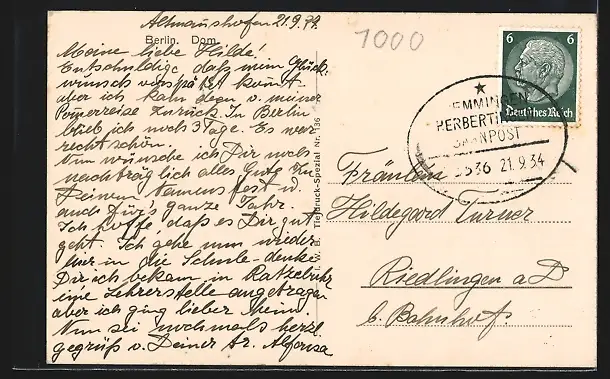 Altmannshofen 21.9.34.
Berlin. Dom.
Meine liebe Hilde!
Entschuldige daß mein Glück-
wunsch verspätet kommt
aber ich kam eben v. meiner
zurück. In Berlin
blieb ich noch 3 Tage. Es war
recht schön.
Nun wünsche ich Dir noch
nachträglich alles Gute zu
Deinem Namensfest u.
auch für's ganze Jahr.
Ich hoffe, daß es Dir gut
geht. Ich gehe nun wieder
hier in die Schule - denke
Dir ich bekam in Ratzebuhr
eine Lehrerstelle angetragen
aber ich ging lieber heim.
Nun sei nochmals herzl.
gegrüßt v. Deiner Alfonsa
Tiefdruck-Spezial Nr. 136
1000
6 6
Deutsches Reich
HERBERTINGEN
BAHNPOST
21.9.34
Fräulein
Hildegard Turner
Riedlingen a D
b. Bahnhof.